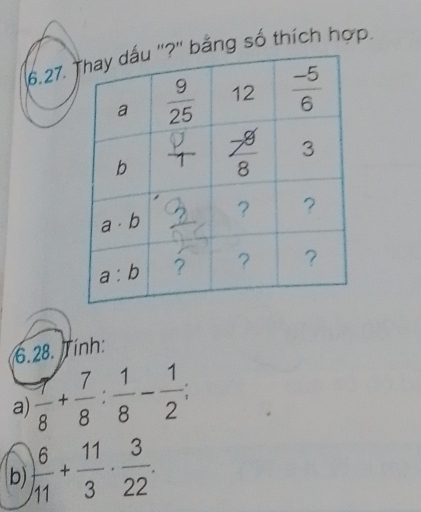 6.27. Thay dấu "?" bằng số thích hợp.
a 9/25 12 -5/6
b 1 -9/8 3
a · b ? ? ?
a : b ? ? ?
6.28. Tính:
a) 7/8 + 7/8 : 1/8 - 1/2;
b) 6/11 + 11/3 · 3/22.